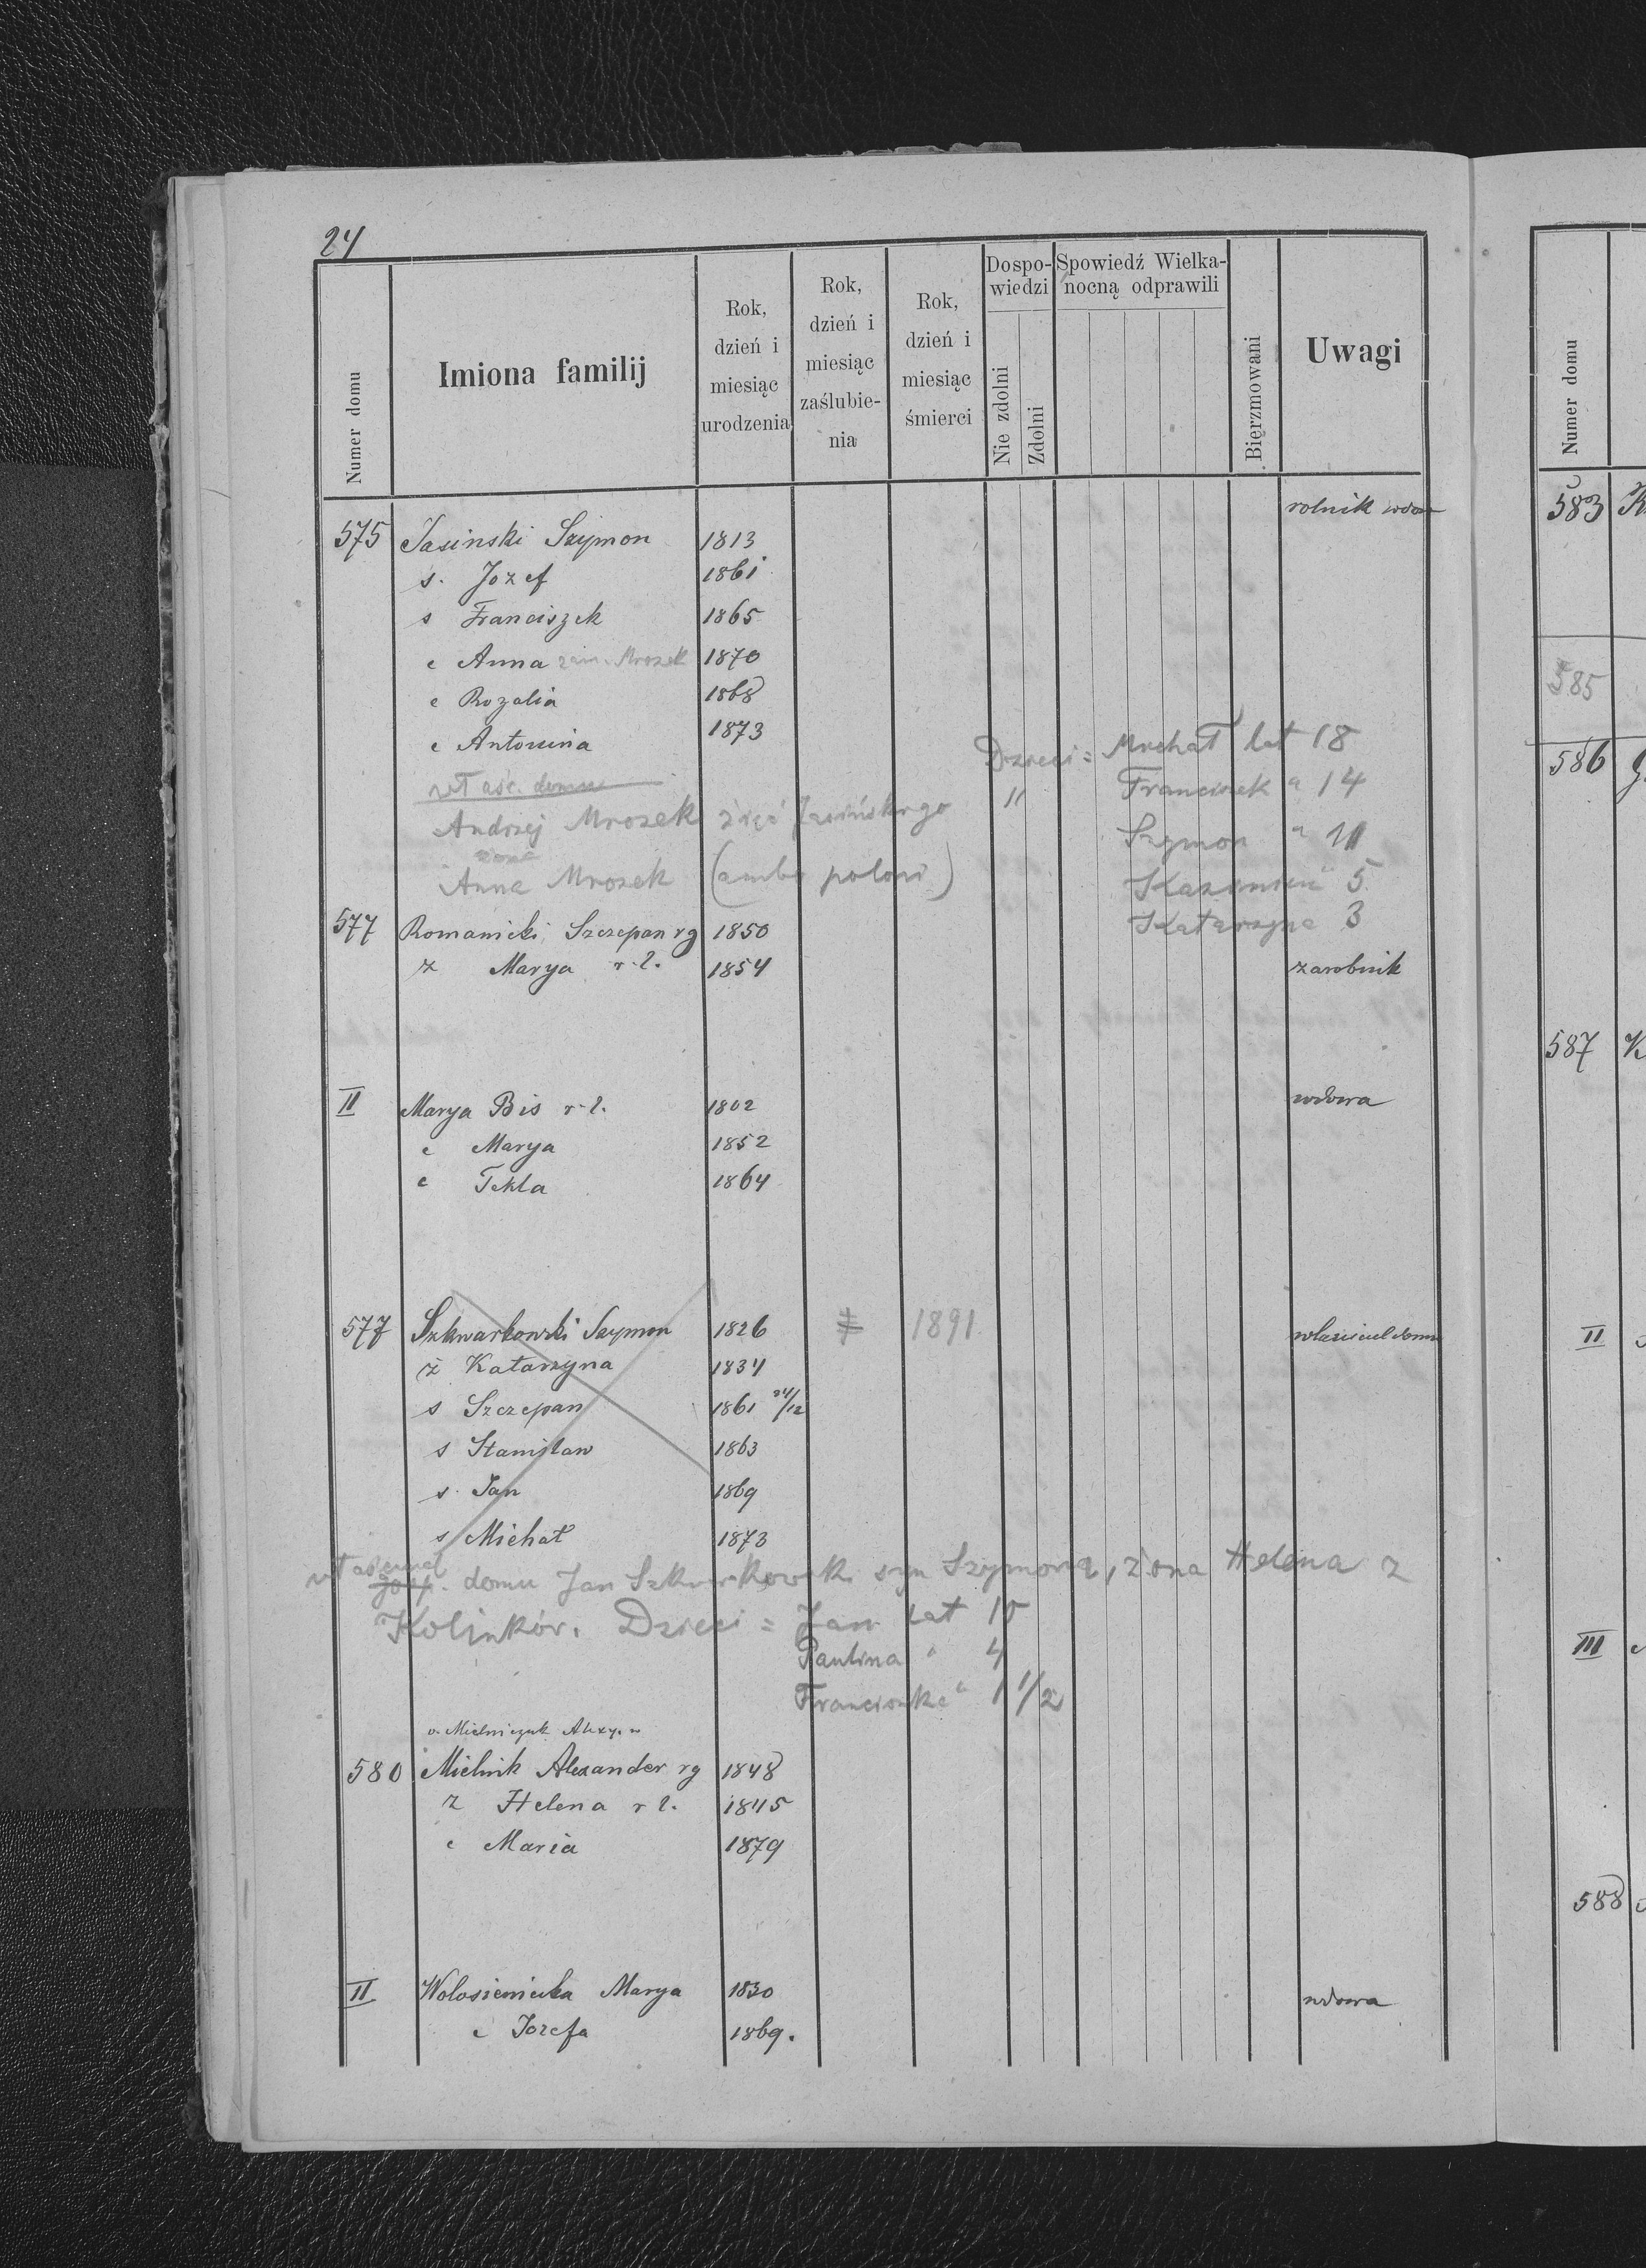 24
Numer domu
Imiona familij
Rok, dzień i miesiąc urodzenia
Rok, dzień i miesiąc zaślubie-nia
Rok, dzień i miesiąc śmierci
Dospo-wiedzi
Nie zdolni
Zdolni
Spowiedź Wielka-nocną odprawili
Bierzmowani
Uwagi
rolnik
575 Jasinski Szymon 1813
s. Jozef 1861
s Franciszek 1865
c Anna zam. Mrozek 1870
c Rozalia 1868
c Antonina 1873
Dzieci = Michał lat 18
właśc. domu
" Franciszek " 14
Andrzej Mrozek zięć Jasińskiego
Szymon "
żona
Anna Mrozek (ambo poloni)
Kazimierz " 5
Katarzyna 3
577 Romanicki Szczepan rg 1850
ż Marya r.l. 1854 zarobnik
II Marya Bis r.l. 1802 wdowa
c Marya 1852
c Tekla 1864
577 Szkwarkowski Szymon 1826 1891 właściciel domu
ż Katarzyna 1834
s Szczepan 1861 24/12
s Stanisław 1863
s. Jan 1869
s Michał 1873
właściciel domu Jan Szkwarkowski syn Szymona, żona Helena z
Kolinków. Dzieci = Jan lat
Paulina " 4
Franciszka " 1 1/2
v. Mielniczuk Alexy
580 Mielnik Alexander rg 1848
ż Helena r l. 1845
c Maria 1879
II Wolosienicka Marya 1830 wdowa
c Jozefa 1869.
Numer domu
583
585
586
587
II
III
588